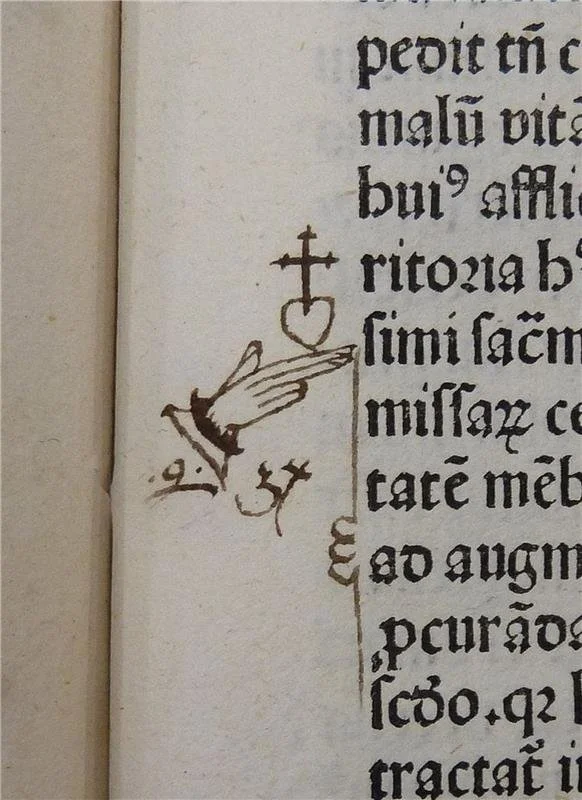 pedit tñ c
malū vitā
buiꝰ afflic
ritoꝛia hꝰ
ſimi ſac̄m
miſſaꝝ ce
.9.
tatē mēb
ad augm
ꝓcurāda
ſcd̄o.qꝛ
tractat̄ i